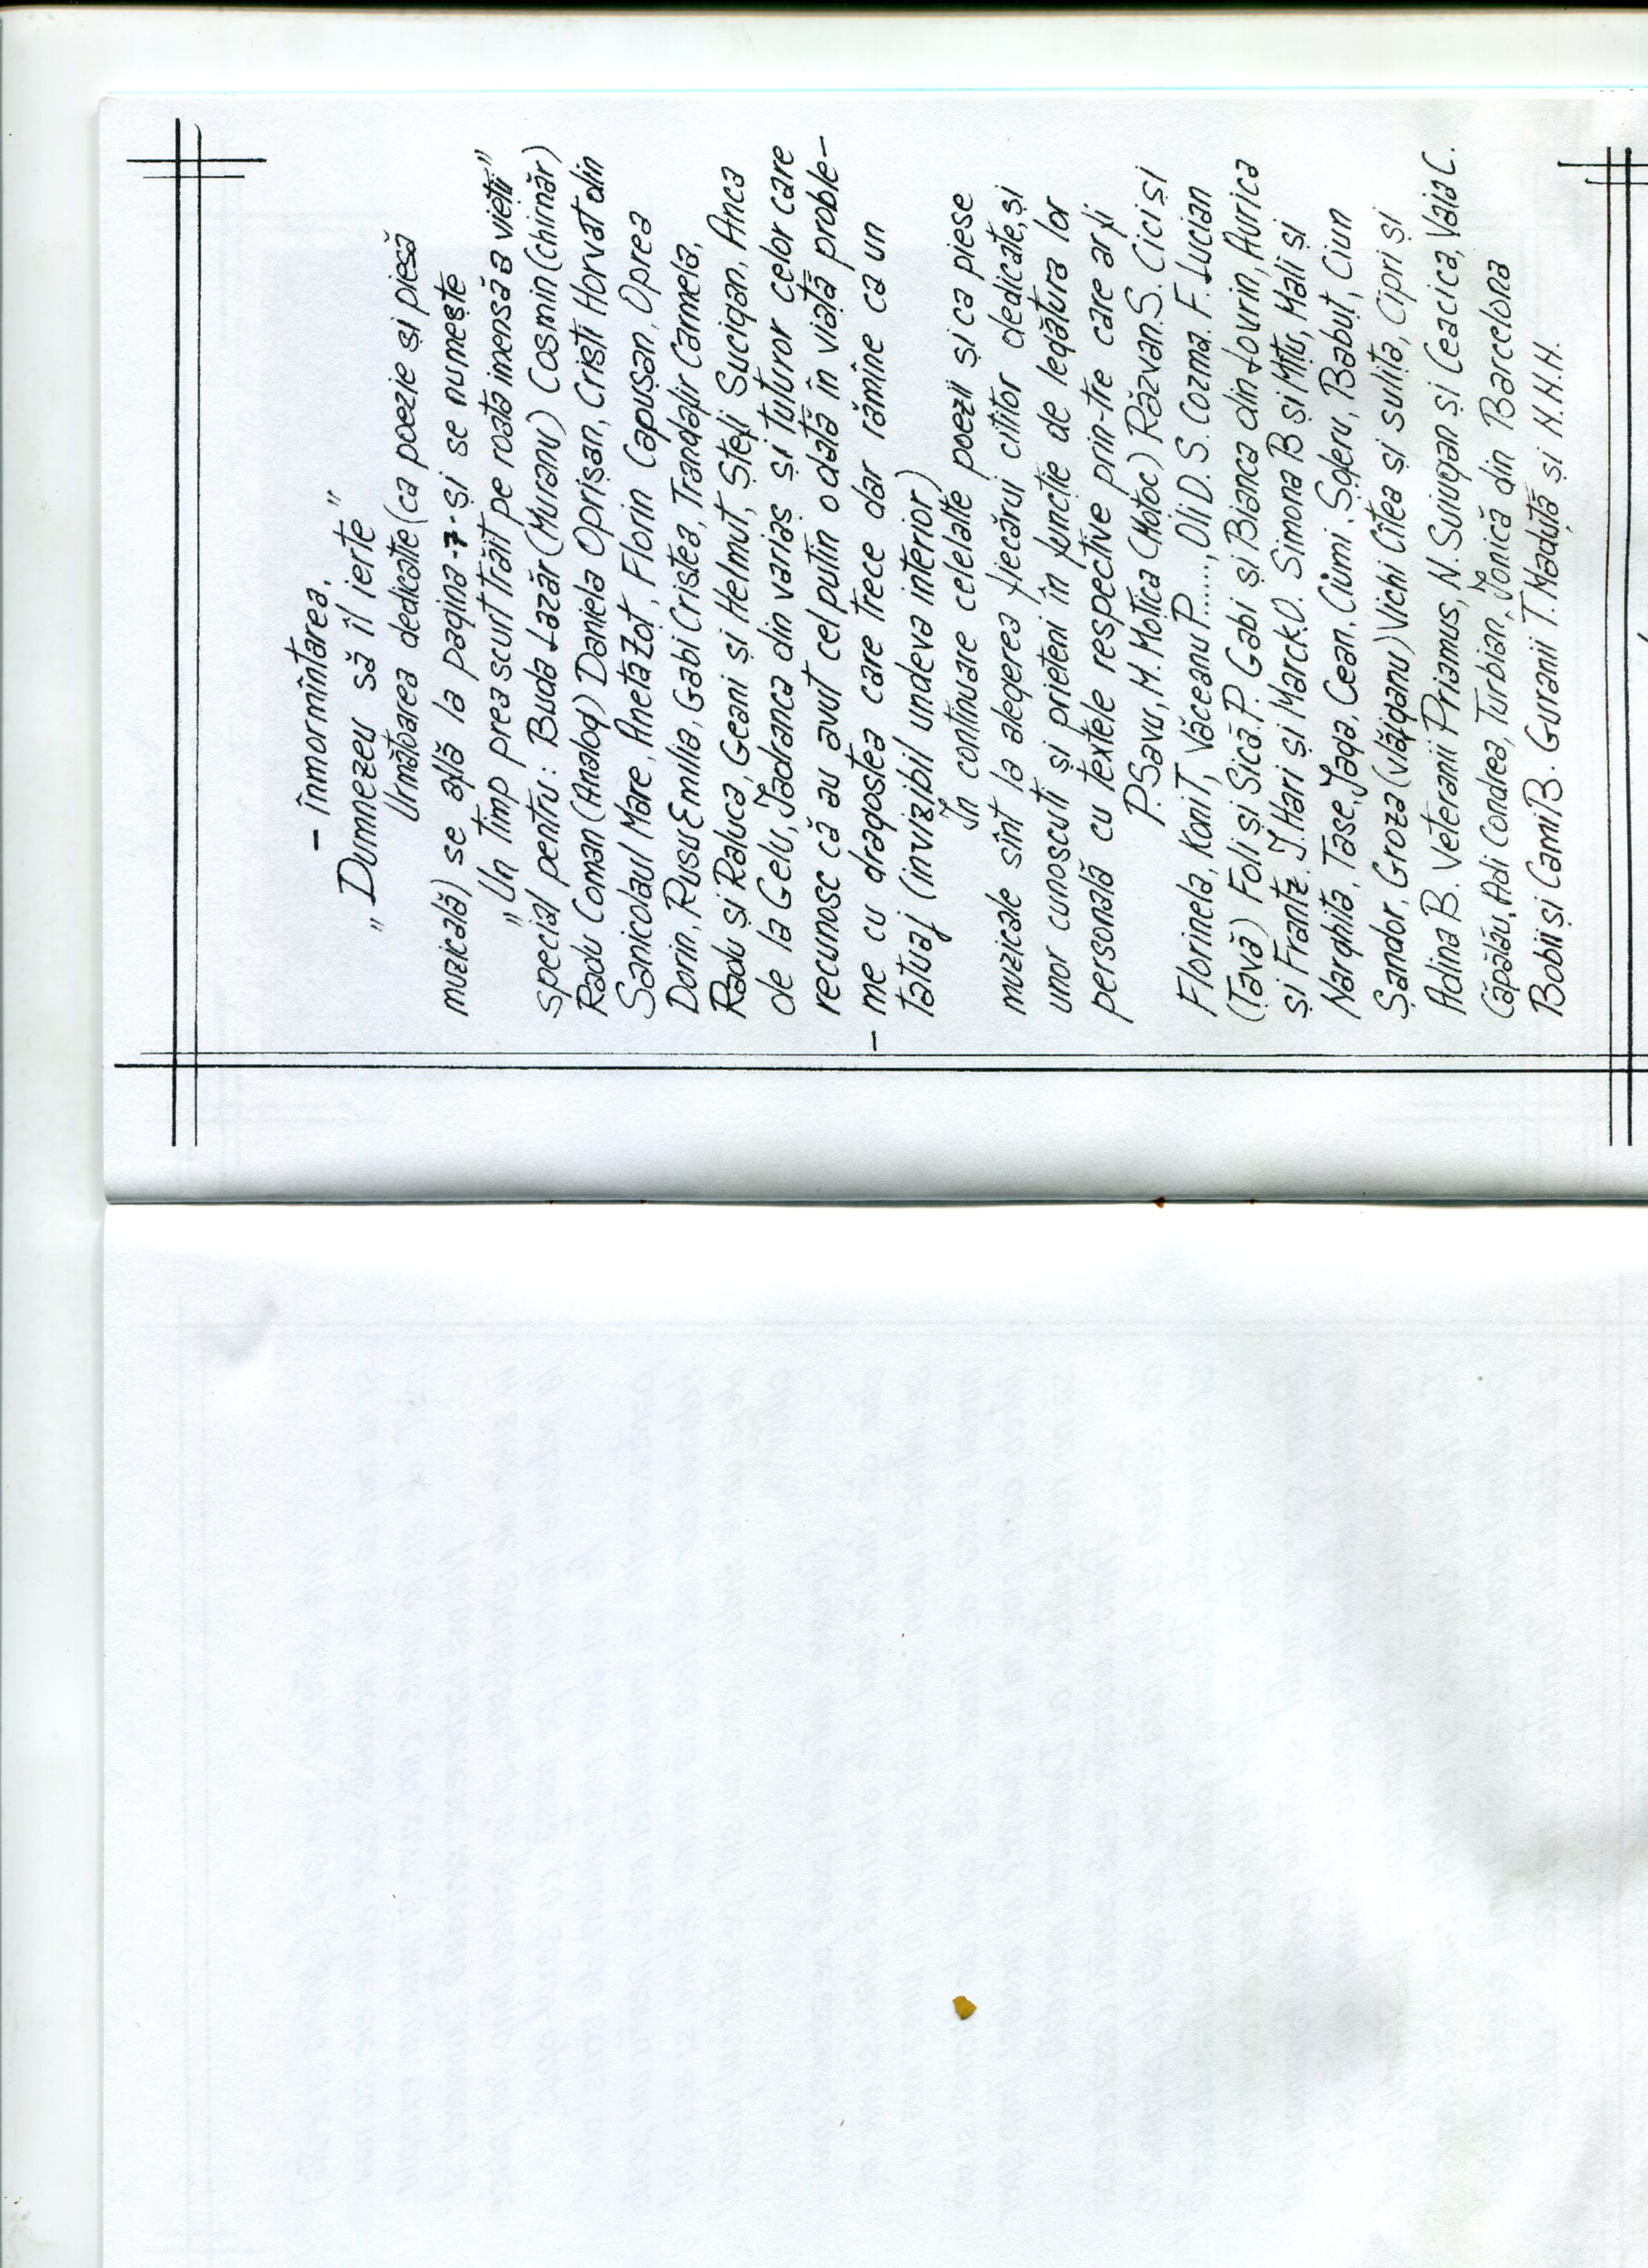 – înmormîntarea.
„Dumnezeu să îl ierte”
Următoarea dedicație (ca poezie și piesă
muzicală) se află la pagina -7- și se numește
„Un timp prea scurt trăit pe roata imensă a vieții”
special pentru: Buda Lazăr (Muranu) Cosmin (chirnăr)
Radu Coman (Analog) Daniela Oprișan, Cristi Horvat din
Sanicolaul Mare, Aneta Zot, Florin Capușan, Oprea
Dorin, Rusu Emilia, Gabi Cristea, Trandafir Carmela,
Radu și Raluca, Geani și Helmut, Ștefi Sucigan, Anca
de la Gelu, Jadranca din variaș și tuturor celor care
recunosc că au avut cel puțin odată în viață proble–
– me cu dragostea care trece dar rămîne ca un
tatuaj (invizibil undeva interior)
În continuare celelalte poezii și ca piese
muzicale sînt la alegerea fiecărui cititor dedicate, și
unor cunoscuți și prieteni în funcție de legătura lor
personală cu textele respective prin-tre care ar fi
P. Savu, M. Motica (Motoc) Răzvan. S. Cici și
Florinela, Koni T, Văceanu P......, Oli D. S. Cozma. F. Lucian
(Tavă) Foli și Sică. P. Gabi și Bianca din Lovrin, Aurica
și Frantz. J. Hari și Marck.O. Simona B și Mitu, Mali și
Narghita, Tase, Jaga, Cean, Ciumi, Șoferu, Babuț, Ciun
Șandor, Groza (vlăjganu) Vichi Cîtea și sulița, Cipri și
Adina B. Veteranii Priamus, N. Suiugan și Ceacica, Vaia C.
Căpălău, Adi Condrea, Turbian, Ionică din Barcelona
Bobii și Cami B. Guranii T. Maduță și N.H.H.